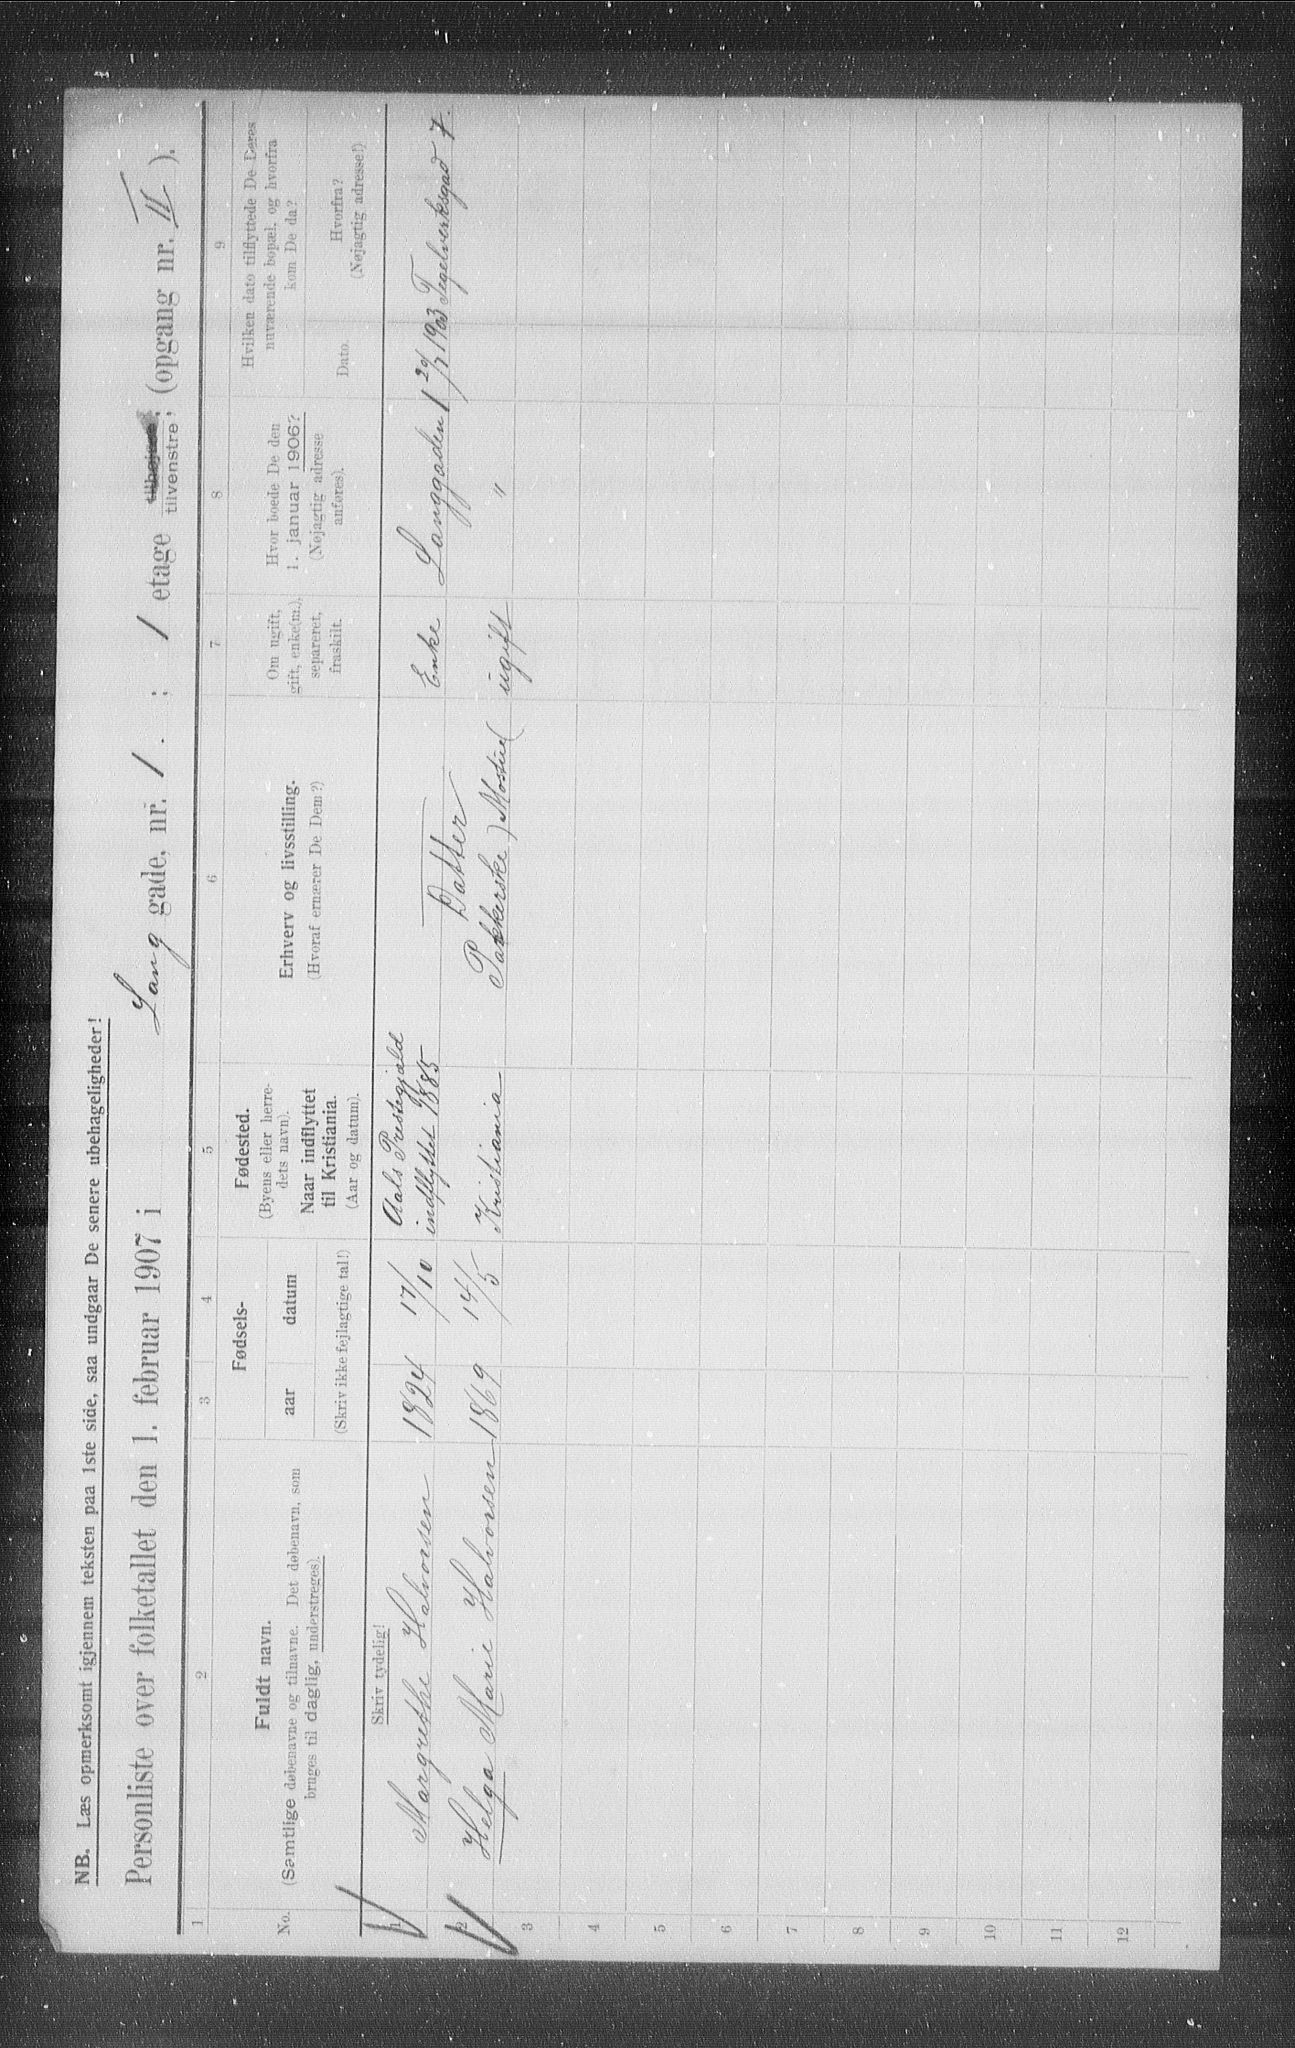 NB. Læs opmerksomt igjennem teksten paa 1ste side, saa undgaar De senere ubehageligheder!
Personliste over folketallet den 1. februar 1907 i Lang gade, nr. 1. ; 1 etage tilhøjre, tilvenstre, (opgang nr. II ).
1 2 3 4 5 6 7 8 9
No.
Fuldt navn.
(Samtlige døbenavne og tilnavne. Det døbenavn, som
bruges til daglig, understreges).
Fødsels-
aar datum
(Skriv ikke fejlagtige tal!)
Fødested.
(Byens eller herre-
dets navn).
Naar indflyttet
til Kristiania.
(Aar og datum).
Erhverv og livsstilling.
(Hvoraf ernærer De Dem?)
Om ugift,
gift, enke(m.),
separeret,
fraskilt.
Hvor boede De den
1. januar 1906?
(Nøjagtig adresse
anføres).
Hvilken dato tilflyttede De Deres
nuværende bopæl, og hvorfra
kom De da?
Dato.
Hvorfra?
(Nøjagtig adresse!)
Skriv tydelig!
1 Margrethe Halvorsen 1824 17/10 Aals Prestegjæld
indflyttet 1885 Enke Langgaden 1 1903 Tegelverksgad 7.
2 Helga Marie Halvorsen 1869 14/5 Kristiania Datter
Pakkerske ugift "
3
4
5
6
7
8
9
10
11
12